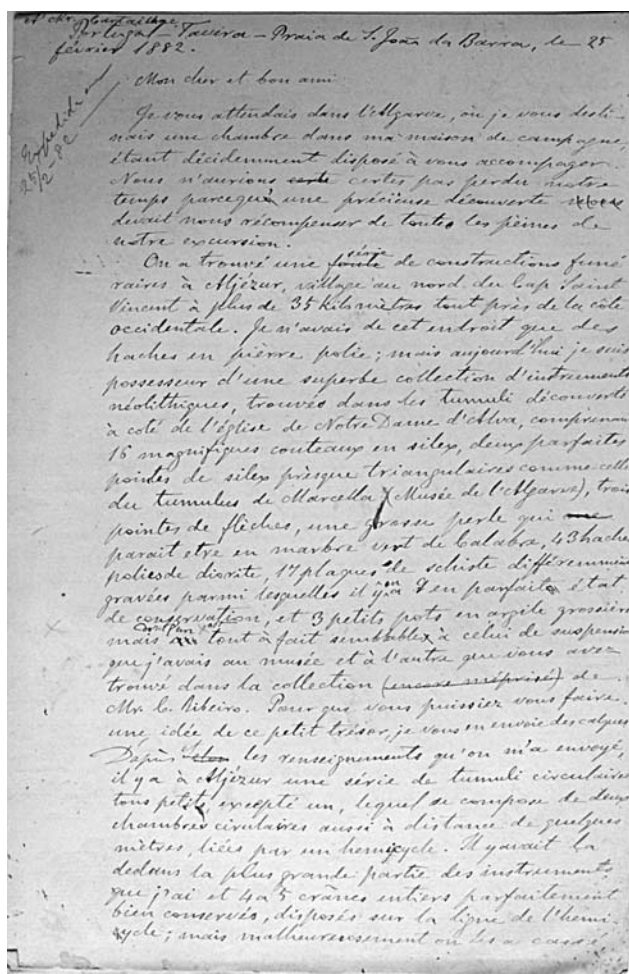 A Mr. Cartailhac
Portugal – Tavira – Praia de S. João da Barra, le 25
février 1882.
Expedida em
25/2-82
Mon cher et bon ami
Je vous attendais dans l'Algarve, où je vous desti-
nais une chambre dans ma maison de campagne,
étant décidemment disposé à vous accompagner.
Nous n'aurions certes pas perdu notre
temps parcequ'à une précieuse découverte
devait nous récompenser de toutes les peines de
notre excursion.
On a trouvé une série de constructions funé
raires à Aljézur, village au nord du Cap Saint
Vincent à plus de 35 kilomètres tout près de la côte
occidentale. Je n'avais de cet endroit que des
haches en pierre polie; mais aujourd'hui je suis
possesseur d'une superbe collection d'instruments
néolithiques, trouvés dans les tumuli découverts
à coté de l'église de Notre Dame d'Alva, comprenan
16 magnifiques couteaux en silex, deux parfaites
pointes de silex presque triangulaires comme celle
du tumulus de Marcella (Musée de l'Algarve), trois
pointes de flèches, une grosse perle qui
parait etre en marbre vert de Calabre, 43 hache
polies de diorite, 17 plaques de schiste différemmen
gravées parmi lesquelles il y en a 7 en parfait état
de conservation, et 3 petits pots en argile grossière
mais dont l'un tout à fait semblable à celui de suspensio
que j'avais au musée et à l'autre que vous avez
trouvé dans la collection (encore méprisé) de
Mr. C. Ribeiro. Pour que vous puissiez vous faire
une idée de ce petit trésor, je vous en envoie des calques
Depuis les renseignements qu'on m'a envoyé,
il y a à Aljézur une série de tumuli circulaires
tous petits, excepté un, lequel se compose de deux
chambres circulaires aussi à distance de quelques
mètres, liées par un hemicycle. Il y avait là
dedans la plus grande partie des instruments
que j'ai et 4 a 5 crânes entiers parfaitement
bien conservés, disposés sur la ligne de l'hemi
cycle; mais malheureusement on les a cassé